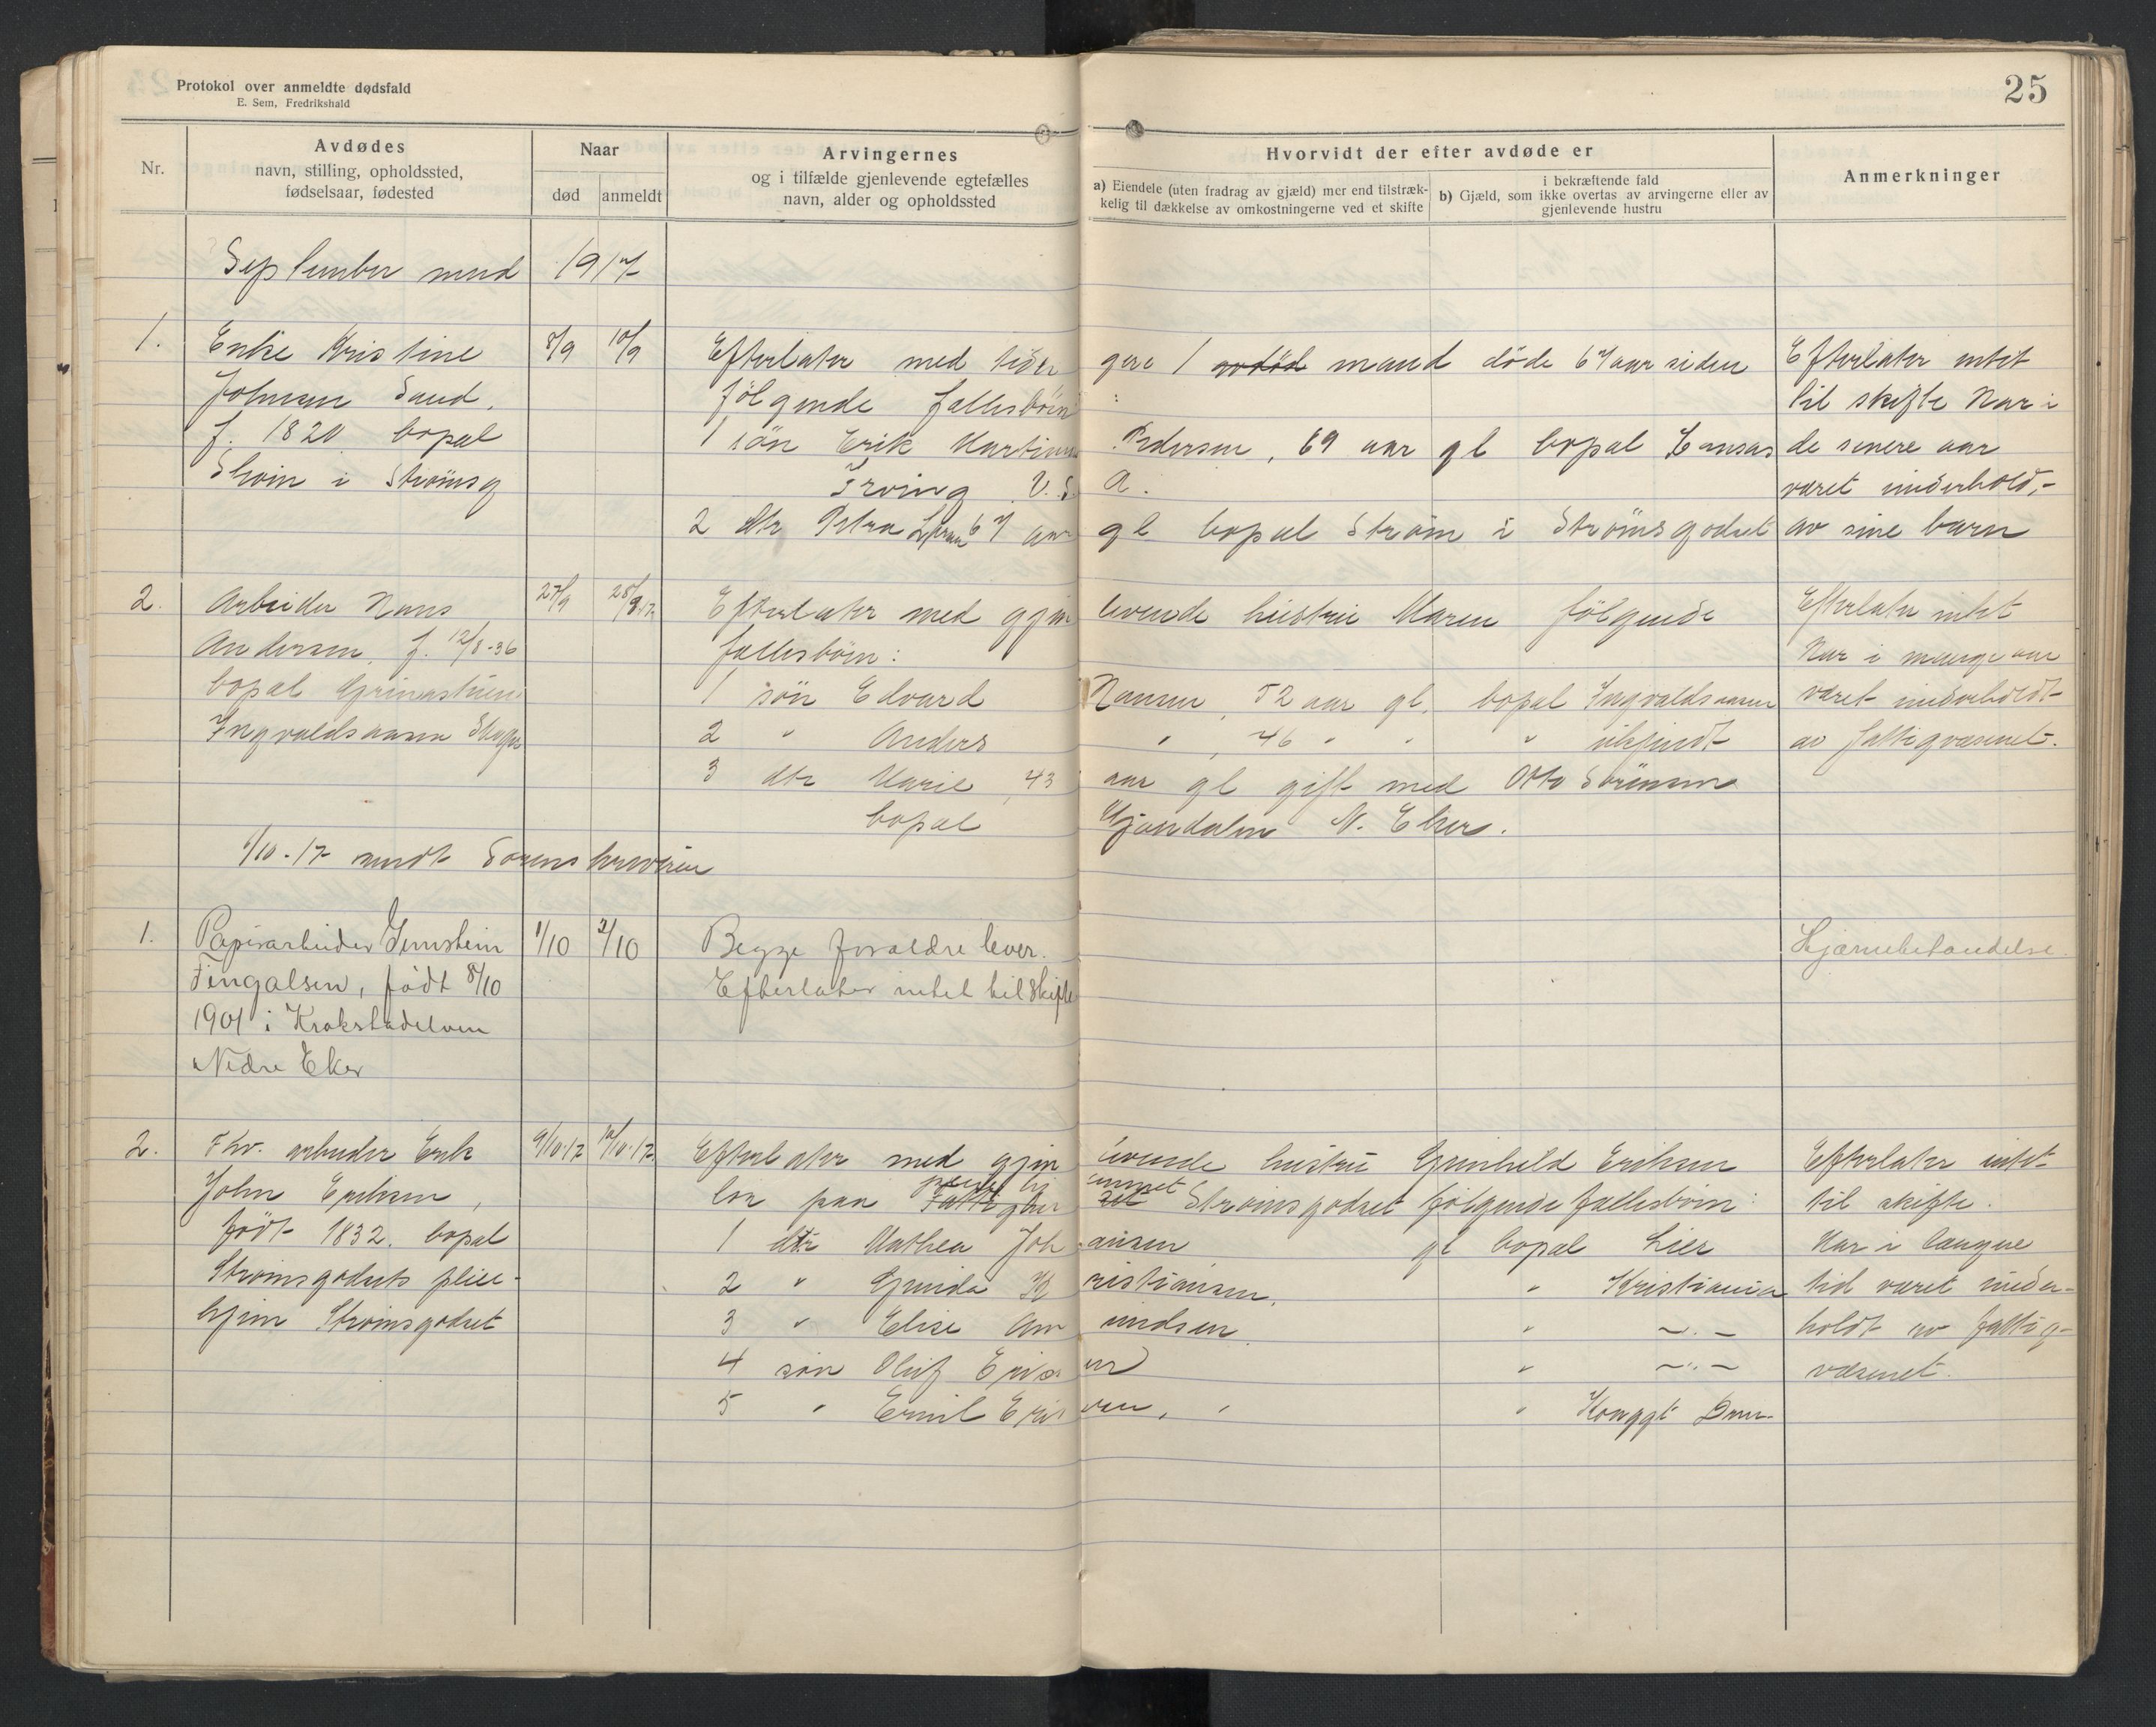 Protokol over anmeldte dødsfald
E. Sem, Fredrikshald
25
Nr.
Avdødes
navn, stilling, opholdssted,
fødselsaar, fødested
Naar
død
anmeldt
Arvingernes
og i tilfælde gjenlevende egtefælles
navn, alder og opholdssted
Hvorvidt der efter avdøde er
a) Eiendele (uten fradrag av gjæld) mer end tilstræk-
kelig til dækkelse av omkostningerne ved et skifte
i bekræftende fald
b) Gjæld, som ikke overtas av arvingerne eller av
gjenlevende hustru
Anmerkninger
September mnd 1917
1. Enke Kristine 8/9 10/9 Efterlater med tidligere 1 avdød mand døde 67 aar siden Efterlater intet
Johnsen Sand, følgende fællesbørn: til skifte Har i
f. 1820 bopal 1 søn Erik Martinius Pedersen, 69 aar gl bopal Kansas de senere aar
Strøm i Strømsg Irving U.S.A. været underhold,-
2 dtr Petra 67 aar gl bopal Strøm i Strømsgodset av sine barn
2. Arbeider Hans 27/9 28/9 17 Efterlater med gjenlevende hustru Maren følgende Efterlater intet
Andersen, f. 12/8-36 fællesbørn: Har i mange aar
bopal 1 søn Edvard Hansen, 52 aar gl. bopal Ingvaldsaasen været underholdt
Ingvaldsaasen 2 " Anders " , 46 " " " ukjendt av fattigvæsenet.
3 dtr Marie, 43 aar gl gift med Otto Sørensen
bopal Mjøndalen N. Eker.
1/10-17 sendt Sorenskriveren
1. Papirarbeider Jernstein 1/10 2/10 Begge foraldre lever. Hjærnebetændelse
Fingalsen, født 8/10 Efterlater intet til skifte
1901 i Krokstadelven
Nedre Eker
2. Fhv. arbeider Erik 9/10-17 10/10-17. Efterlater med gjenlevende hustru Gunhild Eriksen Efterlater intet
John Eriksen, bor paa Strømsgodset følgende fællesbørn: til skifte.
født 1832. bopal 1 dtr Mathea Johansen gl bopal Lier Har i længere
Strømsgodsets pleie- 2 " Gunda Kristiansen, " Kristiania tid været under-
hjem Strømsgodset 3 " Elise Amundsen " ~.- holdt av fattig-
4 søn Oluf Eriksen " ~"- væsenet.
5 " Emil Eriksen, " " Konggt Dram-